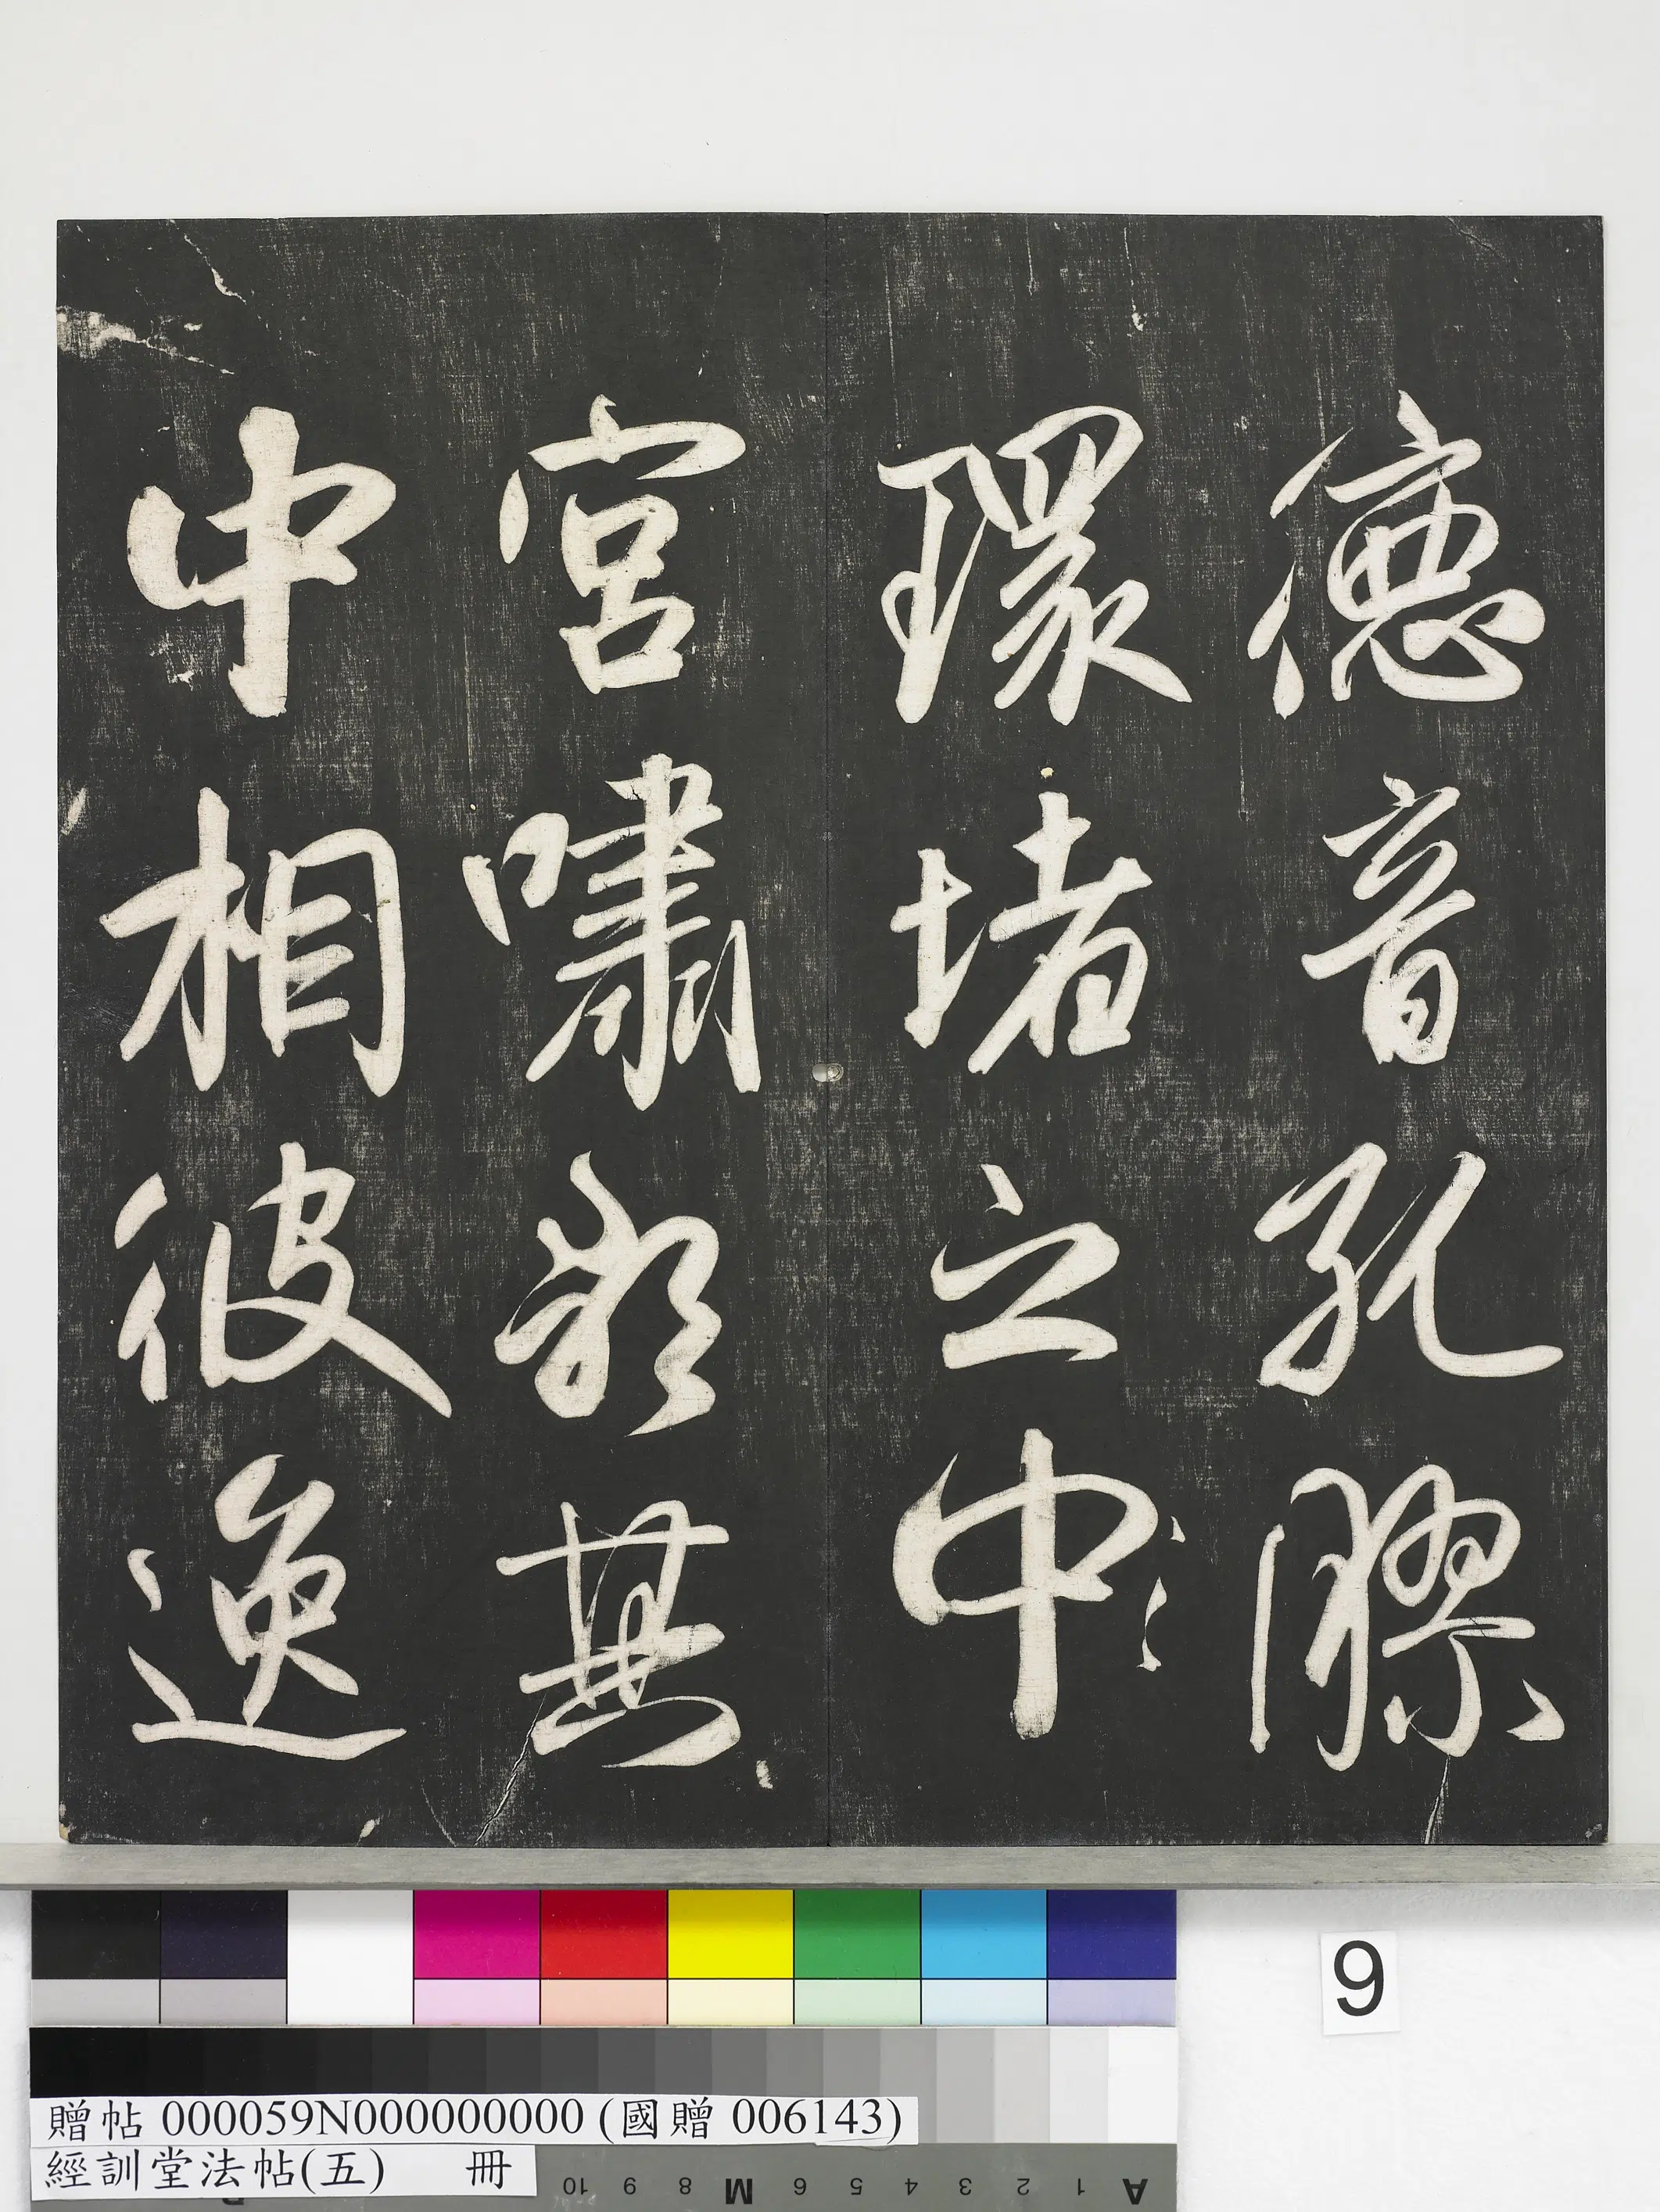 德音孔膠
環堵之中
宮嘯歌其
中相彼逸
9
贈帖 000059N000000000 (國贈 006143)
經訓堂法帖(五) 冊
A 1 2 3 4 5 6 M 8 9 10